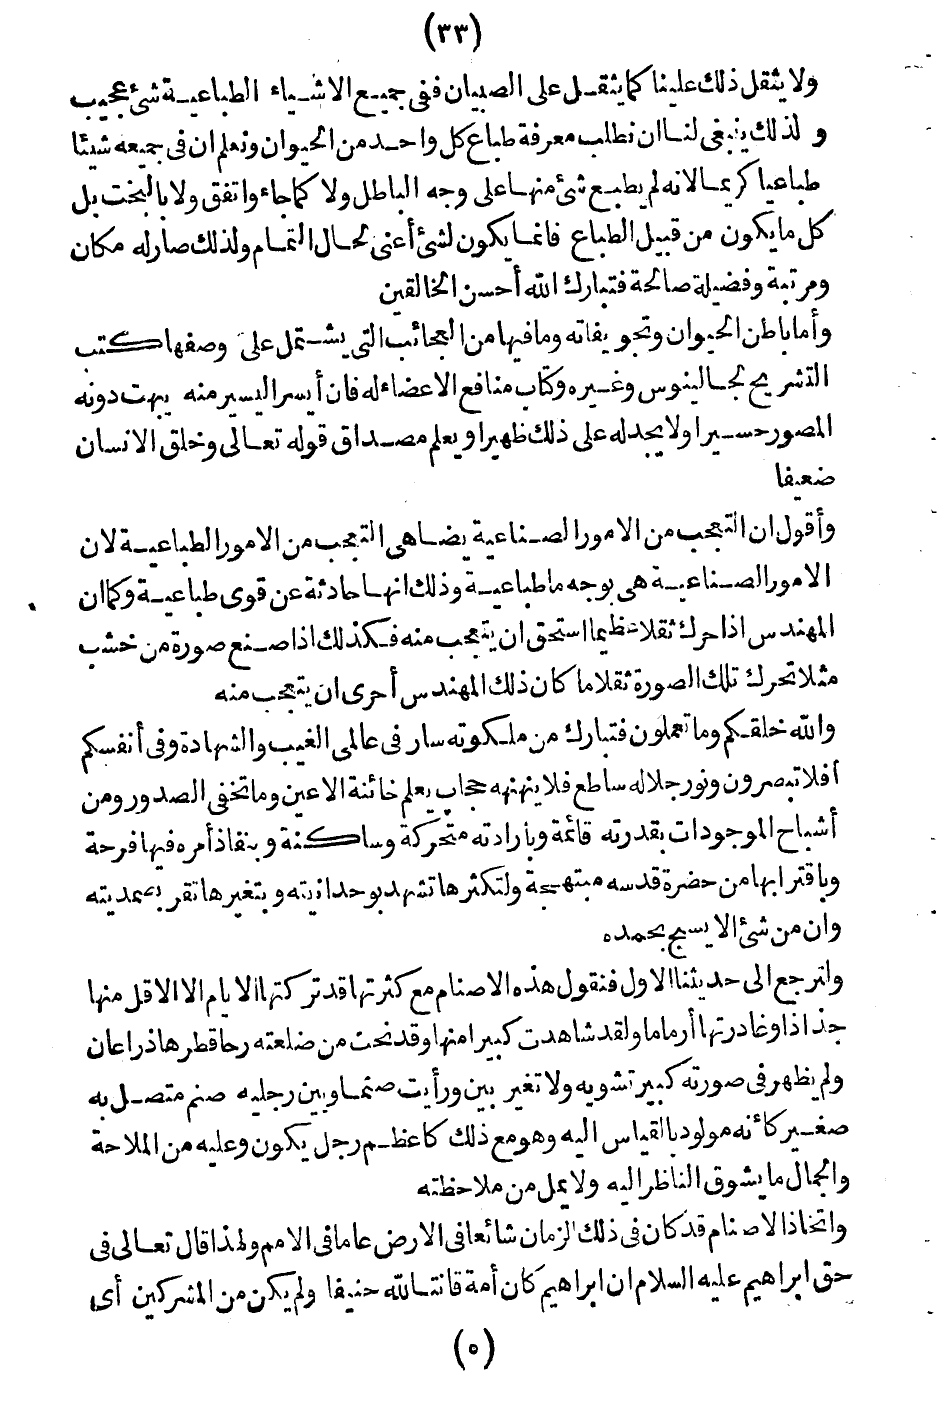 (٣٣)
ولا يثقل ذلك علينا كما يثقل على الصبيان ففى جميع الاشياء الطباعية شئ عجيب
و لذلك ينبغى لنا ان نطلب معرفة طباع كل واحد من الحيوان ونعلم ان فى جميعه شيئا
طباعيا كريما لانه لم يطبع شئ منها على وجه الباطل ولا كما جاء واتفق ولا بالبخت بل
كل ما يكون من قبيل الطباع فانما يكون لشئ أعنى لحال التمام ولذلك صار له مكان
ومرتبة وفضيلة صالحة فتبارك الله أحسن الخالقين
وأما باطن الحيوان وتجويفاته وما فيها من العجائب التى يشتمل على وصفها كتب
التشريح لجالينوس وغيره وكتاب منافع الاعضاء له فان أيسر اليسير منه يبهت دونه
المصور حسيرا ولا يجد له على ذلك ظهيرا ويعلم مصداق قوله تعالى وخلق الانسان
ضعيفا
وأقول ان التعجب من الامور الصناعية يضاهى التعجب من الامور الطباعية لان
الامور الصناعية هى بوجه ما طباعية وذلك انها حادثة عن قوى طباعية وكما ان
المهندس اذا حرك ثقلا عظيما استحق ان يتعجب منه فكذلك اذا صنع صورة من خشب
مثلا تحرك تلك الصورة ثقلا ما كان ذلك المهندس أحرى ان يتعجب منه
والله خلقكم وما تعملون فتبارك من ملكوته سار فى عالمى الغيب والشهادة وفى أنفسكم
أفلا تبصرون ونور جلاله ساطع فلا ينهنهه حجاب يعلم خائنة الاعين وما تخفى الصدور ومن
أشباح الموجودات بقدرته قائمة وبارادته متحركة وساكنة وبنفاذ أمره فيها فرحة
وباقترابها من حضرة قدسه مبتهجة ولتكثرها تشهد بوحدانيته وبتغيرها تقر بصمديته
وان من شئ الا يسبح بحمده
ولنرجع الى حديثنا الاول فنقول هذه الاصنام مع كثرتها قد تركتها الايام الا الاقل منها
جذاذا وغادرتها أرماما ولقد شاهدت كبيرا منها وقد نحت من ضلعته رحا قطرها ذراعان
ولم يظهر فى صورته كبير تشويه ولا تغير بين ورأيت صنما وبين رجليه صنم متصل به
صغير كأنه مولود بالقياس اليه وهو مع ذلك كاعظم رجل يكون وعليه من الملاحة
والجمال ما يشوق الناظر اليه ولا يمل من ملاحظته
واتخاذ الاصنام قد كان فى ذلك الزمان شائعا فى الارض عاما فى الامم ولهذا قال تعالى فى
حق ابراهيم عليه السلام ان ابراهيم كان أمة قانتا لله حنيفا ولم يكن من المشركين أى
(٥)